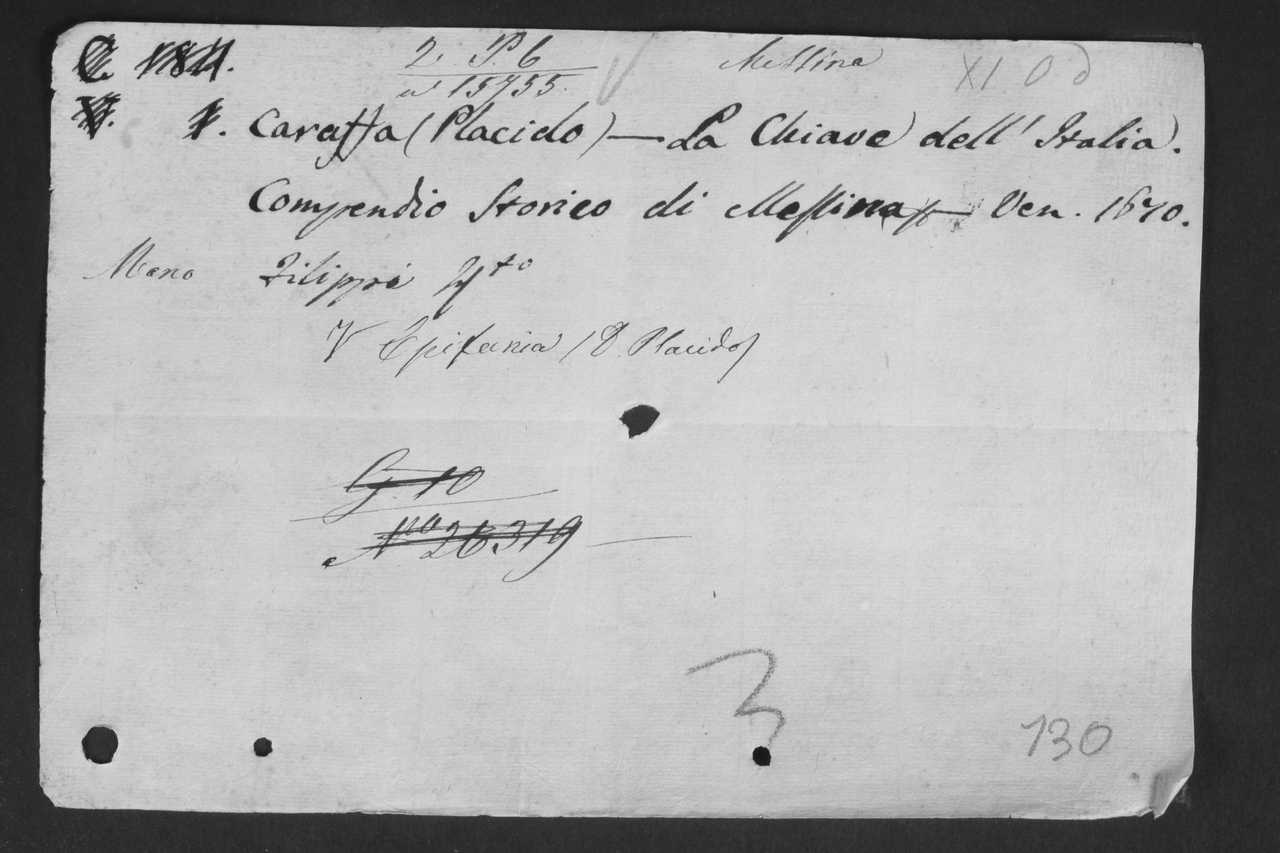 2. P. 6
Messina
XI. O d
nº 15755.
1. Caraffa (Placido) — La Chiave dell' Italia.
Compendio Storico di Messina — Ven. 1670.
Mano Filippi 4to
V Epifania (D. Placido)
G. 10
Nro 26319
3
130